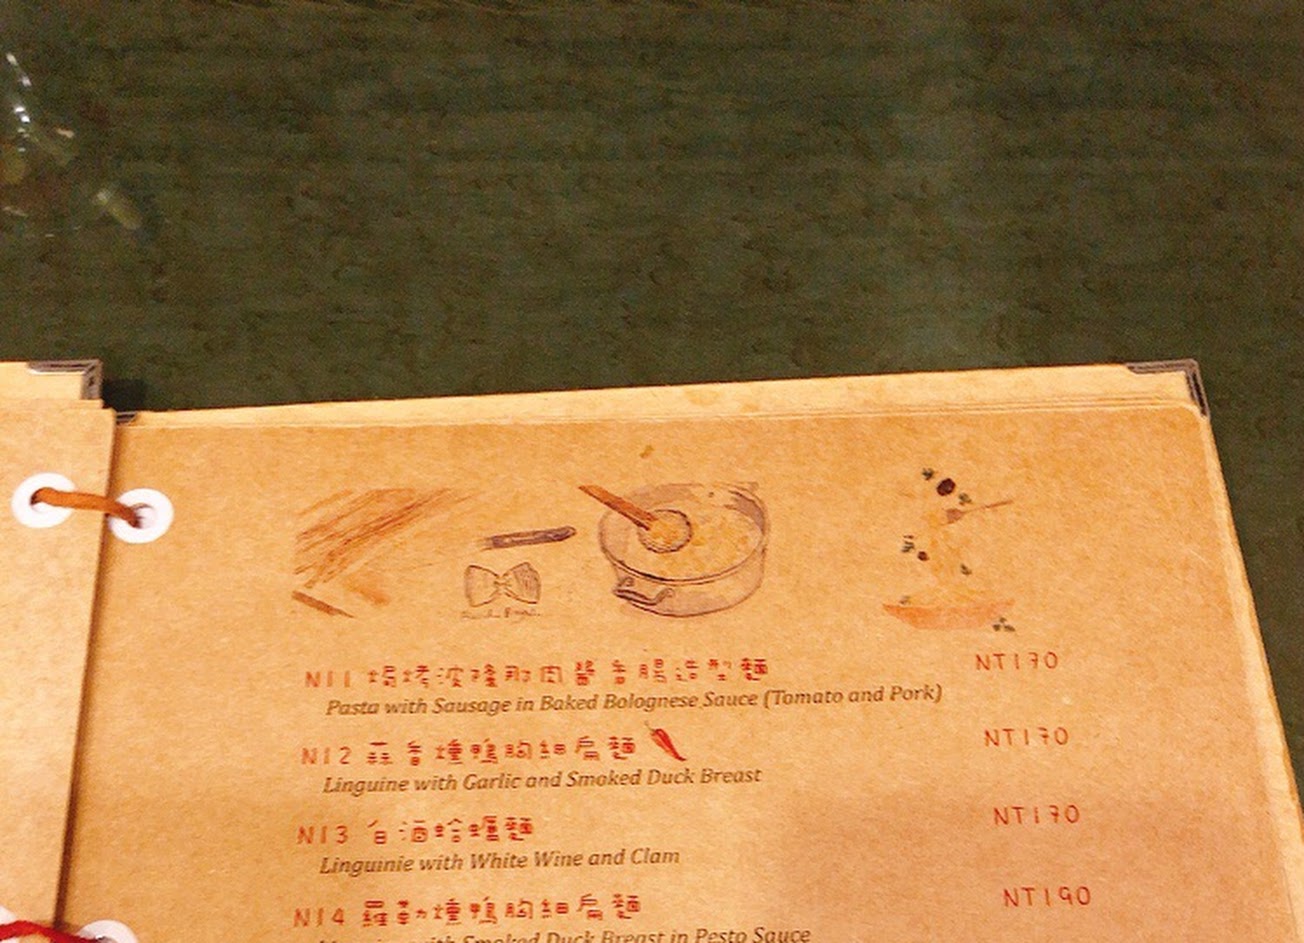 N11 焗烤波隆那肉醬香腸造型麵 NT170
Pasta with Sausage in Baked Bolognese Sauce (Tomato and Pork)
N12 蒜香燻鴨胸細扁麵 NT170
Linguine with Garlic and Smoked Duck Breast
N13 白酒蛤蠣麵 NT170
Linguinie with White Wine and Clam
N14 羅勒燻鴨胸細扁麵 NT190
with Smoked Duck Breast in Pesto Sauce